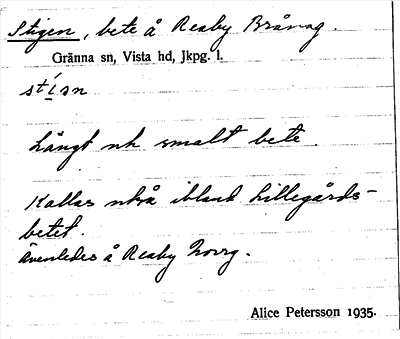 Stigen, bete å Reaby Brånag.
Gränna sn, Vista hd, Jkpg. l.
stí̱sn
Långt nh smalt bete.
Kallas nkså ibland Lillegårds-
betet.
Ävenledes å Reaby Norrg.
Alice Petersson 1935.